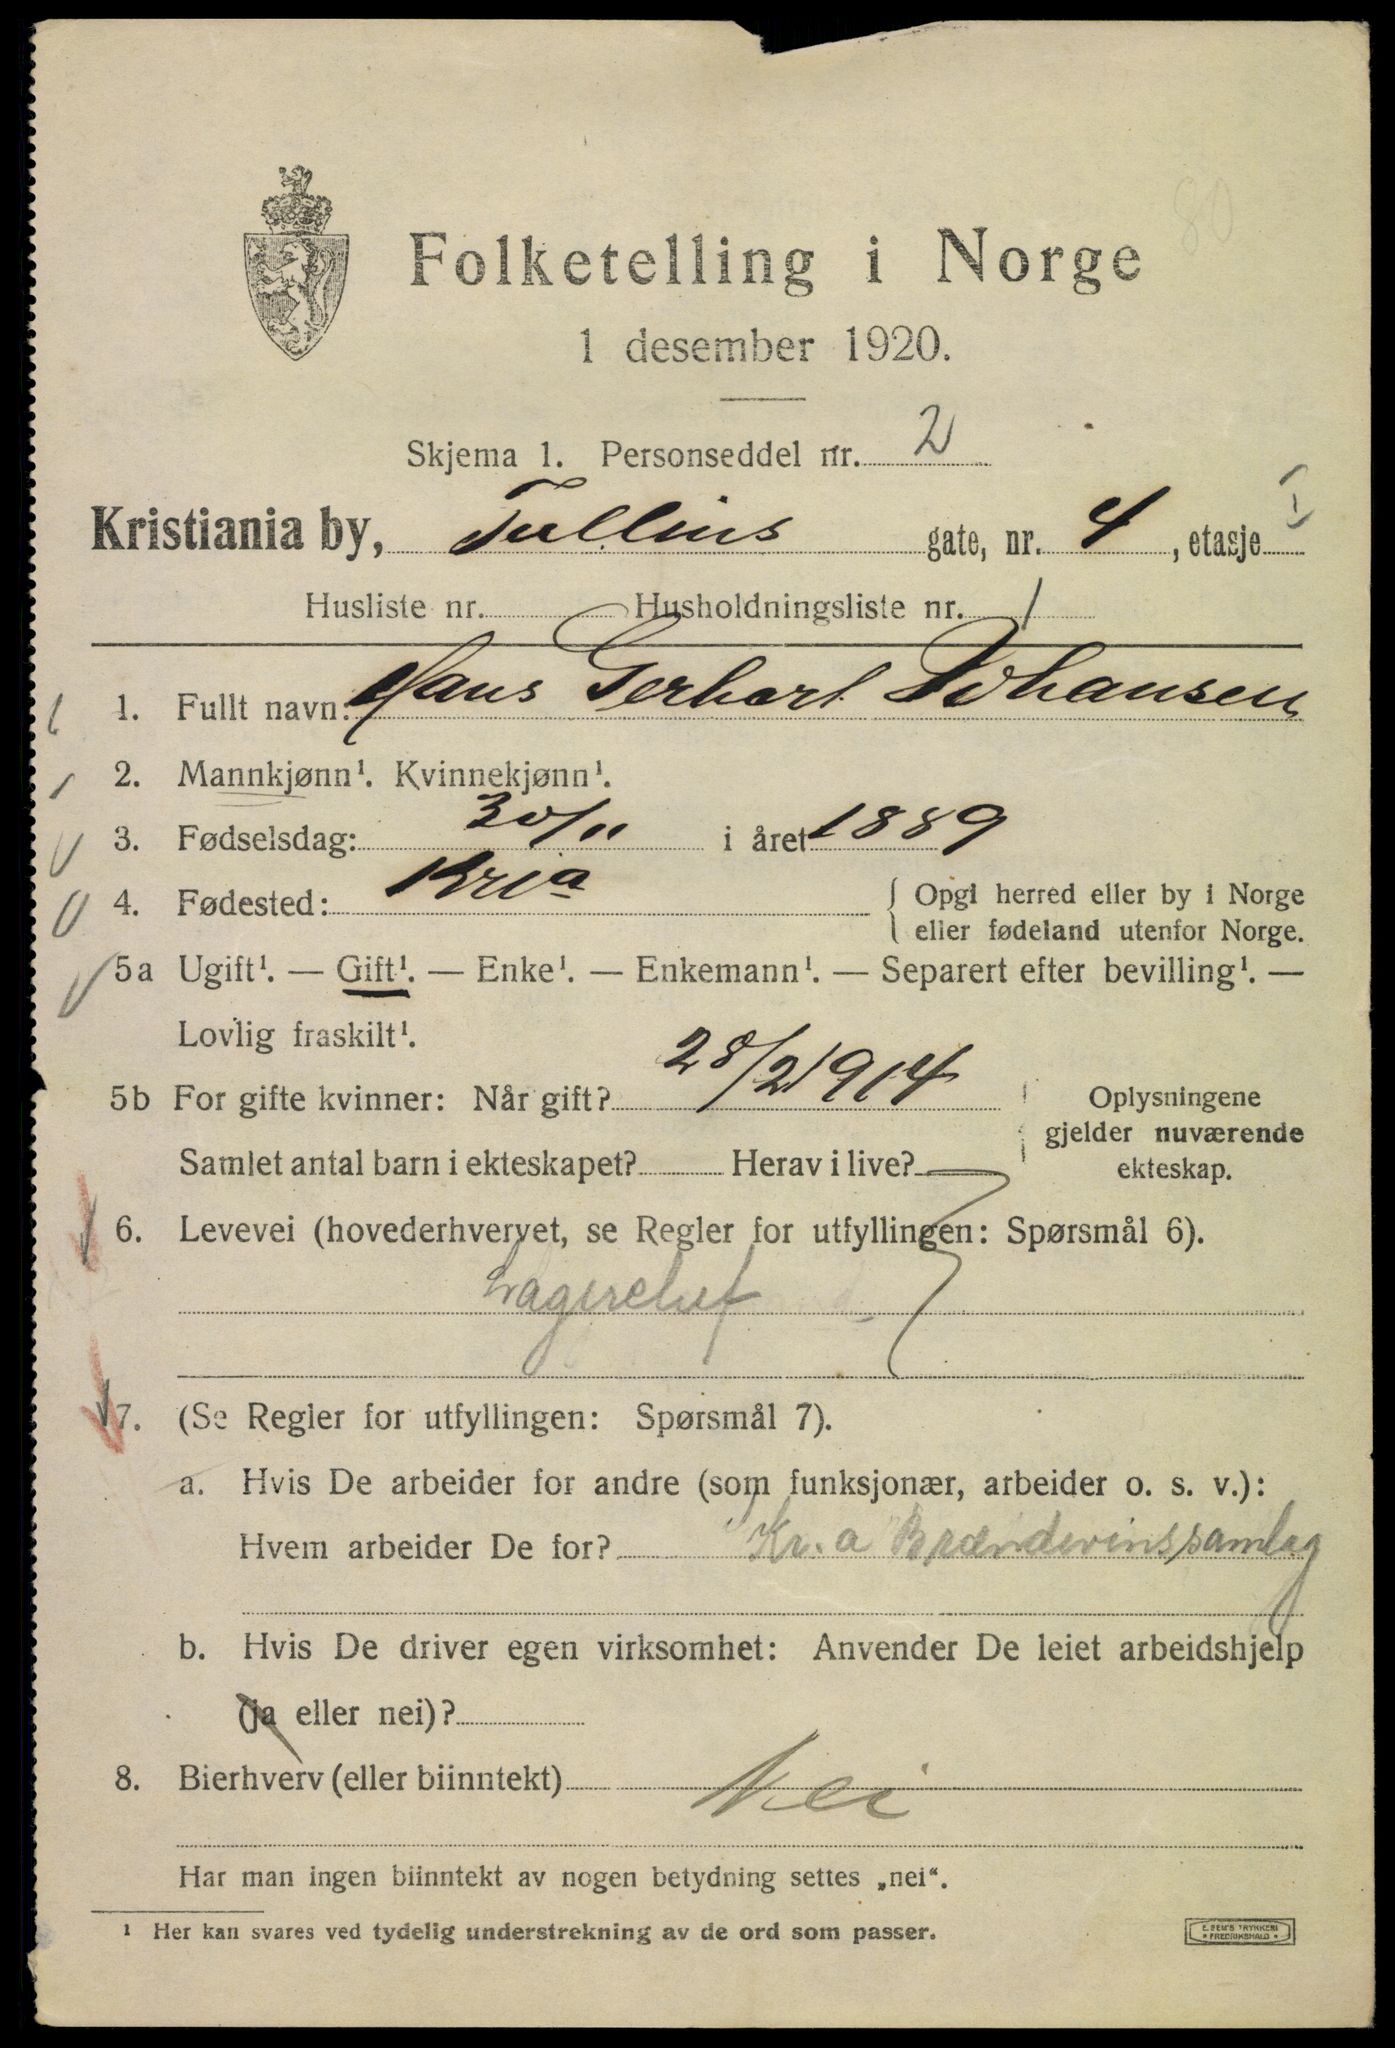 80
Folketelling i Norge
1 desember 1920.
Skjema 1. Personseddel nr. 2
Kristiania by, Tullins gate, nr. 4, etasje I
Husliste nr. Husholdningsliste nr. 1
1. Fullt navn: Hans Gerhart Johansen
2. Mannkjønn¹. Kvinnekjønn¹.
3. Fødselsdag: 30/11 i året 1889
4. Fødested: Kria { Opgi herred eller by i Norge
eller fødeland utenfor Norge.
5a Ugift¹. — Gift¹. — Enke¹. — Enkemann¹. — Separert efter bevilling¹. —
Lovlig fraskilt¹.
5b For gifte kvinner: Når gift? 28/2 1914 Oplysningene
gjelder nuværende
Samlet antal barn i ekteskapet? Herav i live? ekteskap.
6. Levevei (hovederhvervet, se Regler for utfyllingen: Spørsmål 6).
Lagerchef
7. (Se Regler for utfyllingen: Spørsmål 7).
a. Hvis De arbeider for andre (som funksjonær, arbeider o. s. v.):
Hvem arbeider De for? Kr.a Brændevinssamlag
b. Hvis De driver egen virksomhet: Anvender De leiet arbeidshjelp
(ja eller nei)?
8. Bierhverv (eller biinntekt) Nei
Har man ingen biinntekt av nogen betydning settes „nei“.
¹ Her kan svares ved tydelig understrekning av de ord som passer.
E. SEM'S TRYKKERI
* FREDRIKSHALD *